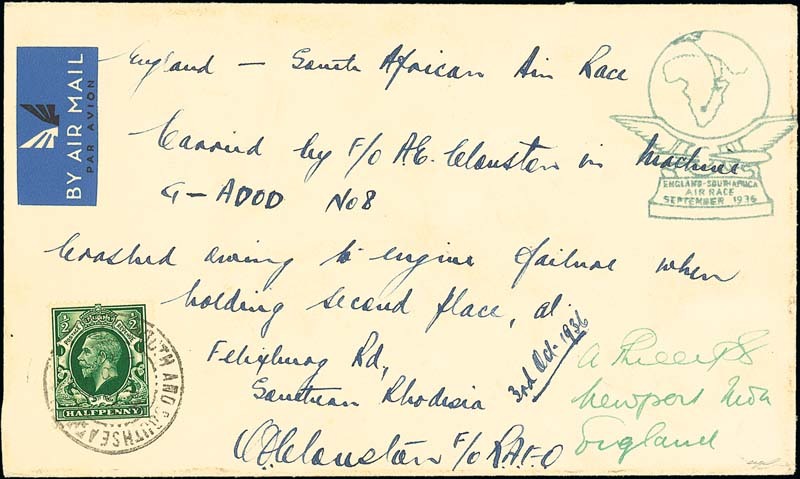 BY AIR MAIL
PAR AVION
England - South African Air Race
Carried by F/O A.E. Clouston in Machine
G-ADOD No 8
Crashed owing to engine failure when
holding second place, at
Felixburg Rd,
Southern Rhodesia
3rd Oct. 1936
A E Clouston F/O R.A.F.O
ENGLAND-SOUTH AFRICA
AIR RACE
SEPTEMBER 1936
½ ½
POSTAGE REVENUE
HALFPENNY
OUTH AND SOUTHSEA
A
Newport Mon
England